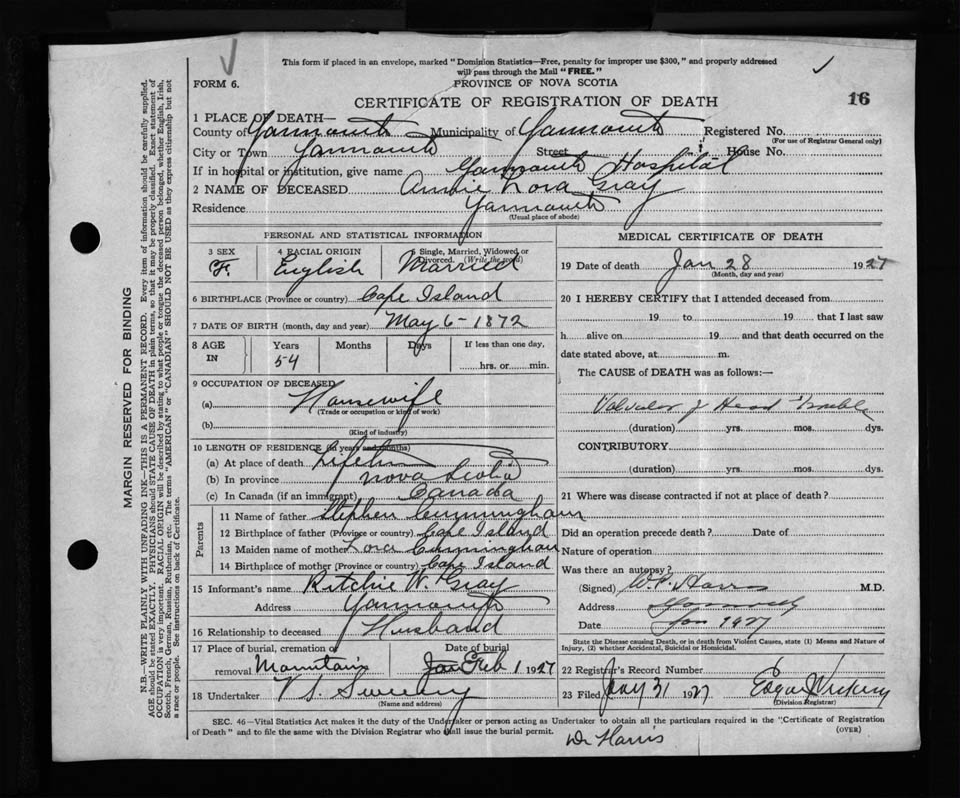 This form if placed in an envelope, marked "Dominion Statistics—Free, penalty for improper use $300," and properly addressed
will pass through the Mail "FREE."
FORM 6. PROVINCE OF NOVA SCOTIA
CERTIFICATE OF REGISTRATION OF DEATH 16
1 PLACE OF DEATH—
County of Yarmouth Municipality of Yarmouth Registered No.
(For use of Registrar General only)
City or Town Yarmouth Street House No.
If in hospital or institution, give name Yarmouth Hospital
2 NAME OF DECEASED Annie Nora Gray
Residence Yarmouth
(Usual place of abode)
PERSONAL AND STATISTICAL INFORMATION
3 SEX 4 RACIAL ORIGIN 5 Single, Married, Widowed or Divorced. (Write the word)
F English Married
6 BIRTHPLACE (Province or country) Cape Island
7 DATE OF BIRTH (month, day and year) May 6-1872
8 AGE IN Years Months Days If less than one day,
54 hrs. or min.
9 OCCUPATION OF DECEASED
(a) Housewife
(Trade or occupation or kind of work)
(b)
(Kind of industry)
10 LENGTH OF RESIDENCE (in years and months)
(a) At place of death
(b) In province Nova Scotia
(c) In Canada (if an immigrant) Canada
Parents
11 Name of father Stephen Cunningham
12 Birthplace of father (Province or country) Cape Island
13 Maiden name of mother Cunningham
14 Birthplace of mother (Province or country) Cape Island
15 Informant's name Ritchie W. Gray
Address Yarmouth
16 Relationship to deceased Husband
17 Place of burial, cremation or removal Mountain Date of burial Jan Feb 1 1927
18 Undertaker V S Sweeny
(Name and address)
MEDICAL CERTIFICATE OF DEATH
19 Date of death Jan 28 1927
(Month, day and year)
20 I HEREBY CERTIFY that I attended deceased from
19 to 19 that I last saw
h alive on 19 and that death occurred on the
date stated above, at m.
The CAUSE of DEATH was as follows:—
Trouble
(duration) yrs. mos. dys.
CONTRIBUTORY.
(duration) yrs. mos. dys.
21 Where was disease contracted if not at place of death?
Did an operation precede death? Date of
Nature of operation
Was there an autopsy?
(Signed) Harris M.D.
Address Yarmouth
Date Jan 1927
State the Disease causing Death, or in death from Violent Causes, state (1) Means and Nature of Injury, (2) whether Accidental, Suicidal or Homicidal.
22 Registrar's Record Number
23 Filed 31 1927 Edgar Vickery
(Division Registrar)
SEC. 46—Vital Statistics Act makes it the duty of the Undertaker or person acting as Undertaker to obtain all the particulars required in the "Certificate of Registration
of Death" and to file the same with the Division Registrar who shall issue the burial permit. (OVER)
Dr Harris
MARGIN RESERVED FOR BINDING
N.B.—WRITE PLAINLY WITH UNFADING INK—THIS IS A PERMANENT RECORD. Every item of information should be carefully supplied.
AGE should be stated EXACTLY. PHYSICIANS should STATE CAUSE OF DEATH in plain terms, so that it may be properly classified. Exact statement of
OCCUPATION is very important. RACIAL ORIGIN will be described by stating to what people or tongue the deceased person belonged, whether English, Irish,
Scotch, French, German, Russian, Ruthenian, etc. The terms "AMERICAN" or "CANADIAN" SHOULD NOT BE USED as they express citizenship but not
a race or people. See instructions on back of Certificate.